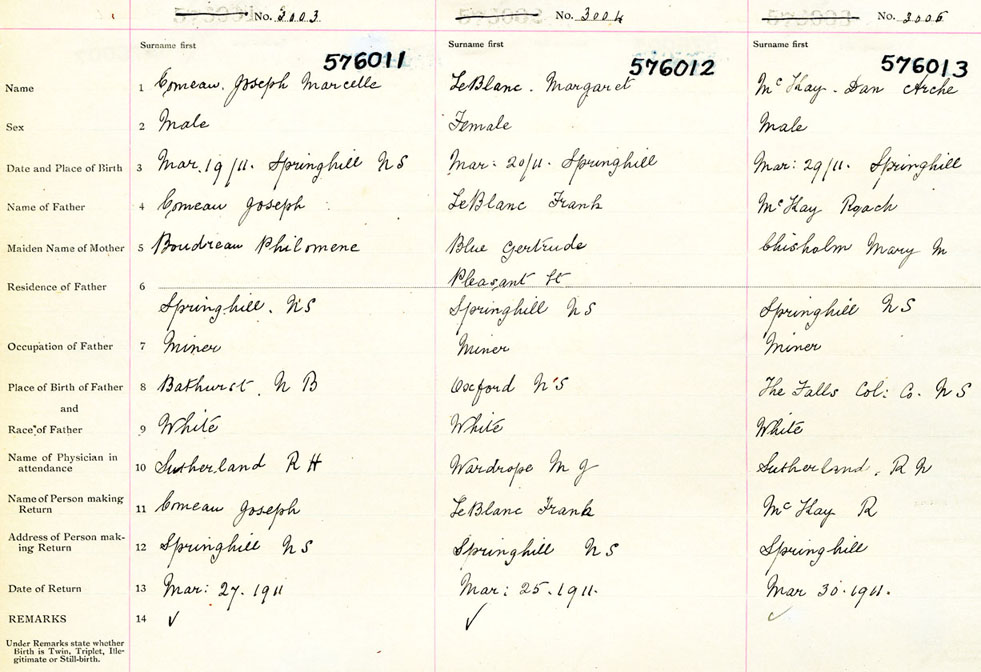 No. 3003 No. 3004 No. 3005
Surname first Surname first Surname first
576011 576012 576013
Name 1 Comeau, Joseph Marcelle LeBlanc. Margaret Mc Kay. Dan Arche
Sex 2 Male Female Male
Date and Place of Birth 3 Mar. 19/11. Springhill N S Mar: 20/11. Springhill Mar: 29/11. Springhill
Name of Father 4 Comeau Joseph LeBlanc Frank Mc Kay Roach
Maiden Name of Mother 5 Boudreau Philomene Blue Gertrude Chisholm Mary M
Pleasant St
Residence of Father 6
Springhill. N S Springhill N S Springhill N S
Occupation of Father 7 Miner Miner Miner
Place of Birth of Father 8 Bathurst. N B Oxford N S The Falls Col: Co. N S
and
Race of Father 9 White White White
Name of Physician in
attendance 10 Sutherland R H Wardrope M J Sutherland. R
Name of Person making
Return 11 Comeau Joseph LeBlanc Frank Mc Kay R
Address of Person mak-
ing Return 12 Springhill N S Springhill N S Springhill
Date of Return 13 Mar: 27. 1911 Mar: 25. 1911. Mar 30. 1911.
REMARKS 14 ✓ ✓ ✓
Under Remarks state whether
Birth is Twin, Triplet, Ille-
gitimate or Still-birth.